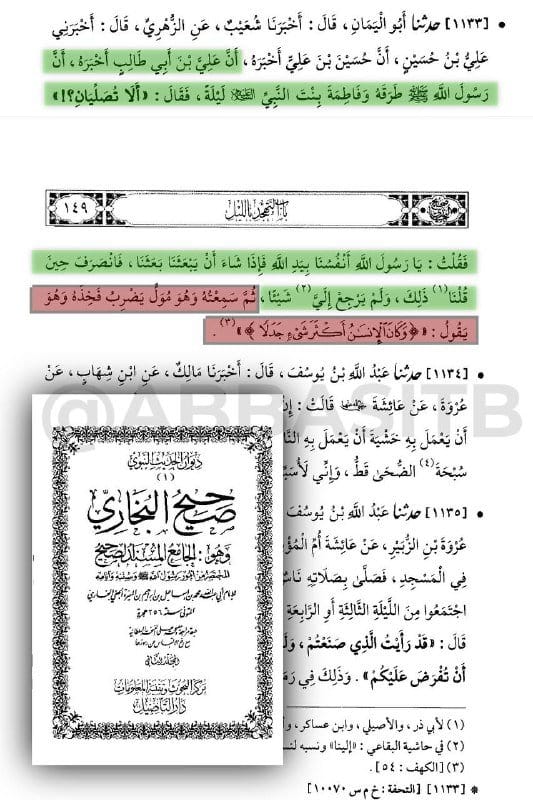 • [١١٣٣] حدثنا أَبُو الْيَمَانِ، قَالَ: أَخْبَرَنَا شُعَيْبٌ، عَنِ الزُّهْرِيِّ، قَالَ: أَخْبَرَنِي
عَلِيُّ بْنُ حُسَيْنٍ، أَنَّ حُسَيْنَ بْنَ عَلِيٍّ أَخْبَرَهُ، أَنَّ عَلِيَّ بْنَ أَبِي طَالِبٍ أَخْبَرَهُ، أَنَّ
رَسُولَ اللَّهِ ﷺ طَرَقَهُ وَفَاطِمَةَ بِنْتَ النَّبِيِّ لَيْلَةً، فَقَالَ: «أَلَا تُصَلِّيَانِ؟!»
بَابُ التهجد بالليل
١٤٩
فَقُلْتُ: يَا رَسُولَ اللَّهِ أَنْفُسُنَا بِيَدِ اللَّهِ فَإِذَا شَاءَ أَنْ يَبْعَثَنَا بَعَثَنَا، فَانْصَرَفَ حِينَ
قُلْنَا(١) ذَلِكَ، وَلَمْ يَرْجِعْ إِلَيَّ(٢) شَيْئًا، ثُمَّ سَمِعْتُهُ وَهُوَ مُوَلٍّ يَضْرِبُ فَخِذَهُ وَهُوَ
يَقُولُ: «﴿وَكَانَ ٱلْإِنسَٰنُ أَكْثَرَ شَىْءٍ جَدَلًا﴾»(٣).
• [١١٣٤] حدثنا عَبْدُ اللَّهِ بْنُ يُوسُفَ، قَالَ: أَخْبَرَنَا مَالِكٌ، عَنِ ابْنِ شِهَابٍ، عَنْ
عُرْوَةَ، عَنْ عَائِشَةَ قَالَتْ: إِنْ
أَنْ يَعْمَلَ بِهِ خَشْيَةَ أَنْ يَعْمَلَ بِهِ النَّا
سُبْحَةَ(٤) الضُّحَى قَطُّ، وَإِنِّي لَأُسَبِّ
@ABBASITB
• [١١٣٥] حدثنا عَبْدُ اللَّهِ بْنُ يُوسُفَ
عُرْوَةَ بْنِ الزُّبَيْرِ، عَنْ عَائِشَةَ أُمِّ الْمُؤْ
فِي الْمَسْجِدِ، فَصَلَّى بِصَلَاتِهِ نَاسٌ
اجْتَمَعُوا مِنَ اللَّيْلَةِ الثَّالِثَةِ أَوِ الرَّابِعَةِ
قَالَ: «قَدْ رَأَيْتُ الَّذِي صَنَعْتُمْ، وَلَ
أَنْ تُفْرَضَ عَلَيْكُمْ». وَذَلِكَ فِي رَمَ
(١) لأبي ذر، والأصيلي، وابن عساكر، و
(٢) في حاشية البقاعي: «إلينا» ونسبه لنس
(٣) [الكهف: ٥٤].
* [١١٣٣] [التحفة: خ م س ١٠٠٧٠]
ديوان الحديث النبوي
(١)
صحيح البخاري
وهو: الجامع المسند الصحيح
المختصر من أمور رسول الله ﷺ وسننه وأيامه
المتوفى سنة ٢٥٦ هجرية
المجلد الثاني
مركز البحوث وتقنية المعلومات
دار التأصيل